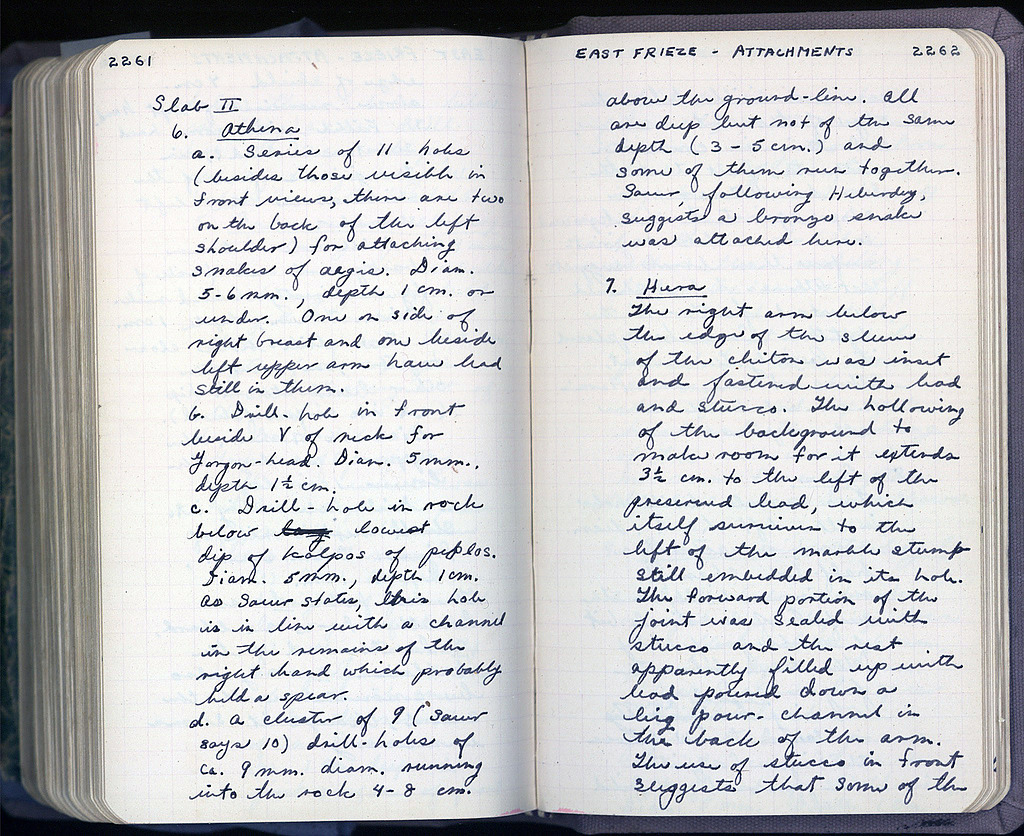 2261
Slab II
6. Athena
a. Series of 11 holes
(besides those visible in
front views, there are two
on the back of the left
shoulder) for attaching
snakes of aegis. Diam.
5-6 mm., depth 1 cm. or
under. One on side of
right breast and one beside
left upper arm have lead
still in them.
b. Drill-hole in front
beside V of neck for
Gorgon-head. Diam. 5 mm.,
depth 1½ cm.
c. Drill-hole in rock
below lowest
dip of kolpos of peplos.
Diam. 5 mm., depth 1 cm.
As Sauer states, this hole
is in line with a channel
in the remains of the
right hand which probably
held a spear.
d. A cluster of 9 (Sauer
says 10) drill-holes of
ca. 9 mm. diam. running
into the rock 4-8 cm.
EAST FRIEZE - ATTACHMENTS 2262
above the ground-line. All
are deep but not of the same
depth (3-5 cm.) and
some of them run together.
Sauer, following Heberdey,
suggests a bronze snake
was attached here.
7. Hera
The right arm below
the edge of the sleeve
of the chiton was inset
and fastened with lead
and stucco. The hollowing
of the background to
make room for it extends
3½ cm. to the left of the
preserved lead, which
itself survives to the
left of the marble stump
still embedded in its hole.
The forward portion of the
joint was sealed with
stucco and the rest
apparently filled up with
lead poured down a
big pour-channel in
the back of the arm.
The use of stucco in front
suggests that some of the